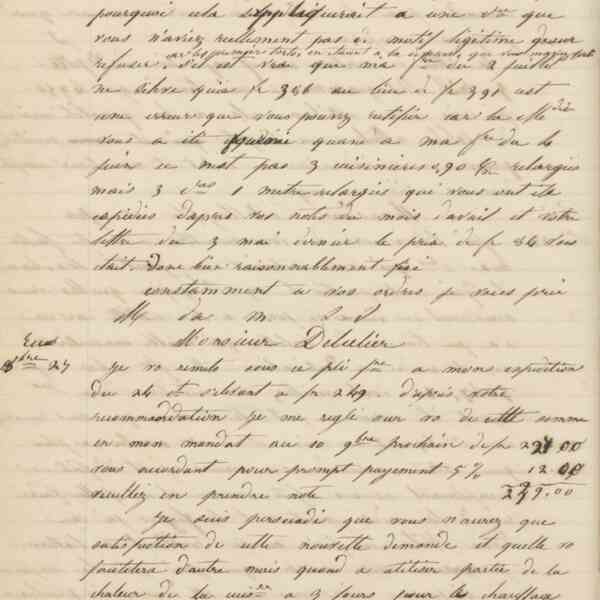 pourquoi cela s'appliquerait a une vre que
vous n'aviez reellement pas de motif legitime de me
refuser. S'il est vrai que ma fre du 2 juillet
ne s'élève qu'a fr 386 au lieu de fr 390 c'est
une erreur que vous pourrez rectifier car la Mdise
vous a été quant a ma fre du 4
juin ce n'est pas 3 cuisinieres 0,90 c/m relargies
mais 3 1 metre relargies qui vous ont été
expediées d'apres vos notes du mois d'avril et votre
lettre du 3 mai dernier le prix de fr 84 vous
était donc bien raisonnablement fixé
constamment a vos ordres je vous prie
M da m S P
Monsieur Debelier
8bre 27
Je vs remets sous ce pli fre a mon expedition
du 24 ct s'elevant a fr 249. d'après votre
recommandation je me regle sur vs de cette somme
en mon mandat au 10 9bre prochain de fr 00
vous accordant pour prompt payement 5% 12 00
veuillez en prendre note
Je suis persuadé que vous n'aurez que
satisfaction de cette nouvelle demande et qu'elle vs
d'autre mais quand a utiliser partie de la
chaleur de la a 3 fours pour le chauffage